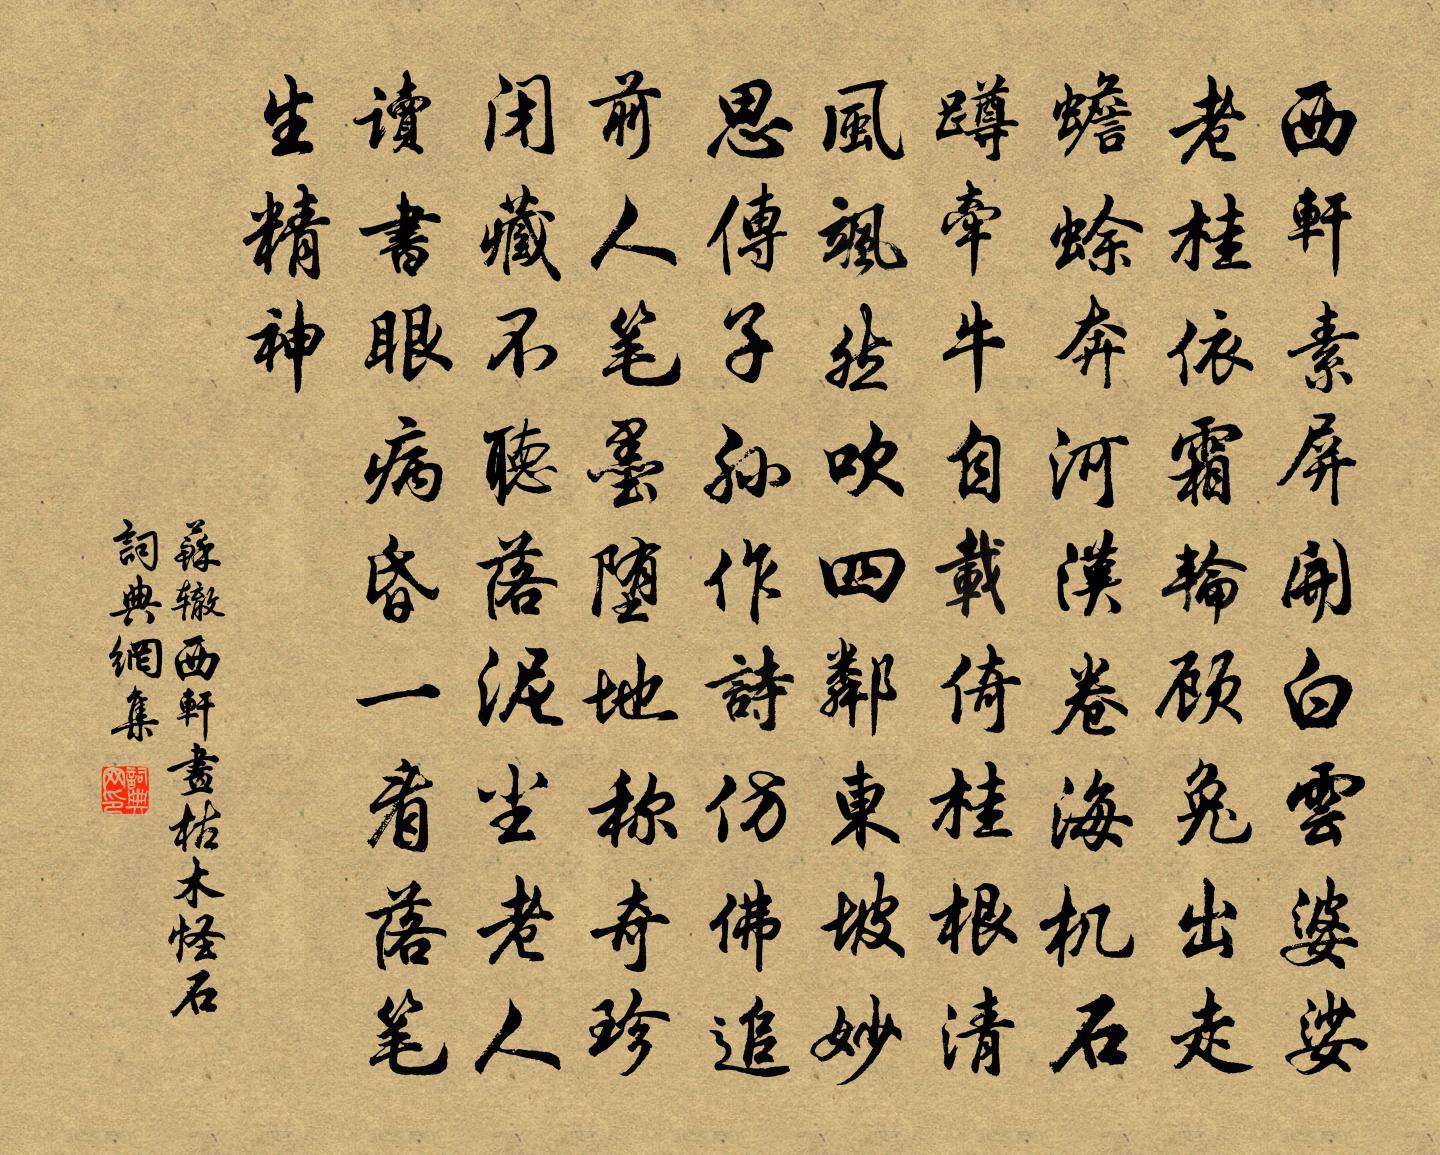 西軒素屏開白雲婆娑
老桂依霜輪顧兔出走
蟾蜍奔河漢卷海机石
蹲牽牛自載倚桂根清
風颯然吹四鄰東坡妙
思傳子孙作詩仿佛追
前人笔墨堕地称奇珍
闭藏不聽落泥尘老人
讀書眼病昏一看落笔
生精神
蘇辙西軒畫枯木怪石
詞典網集
詞典网印